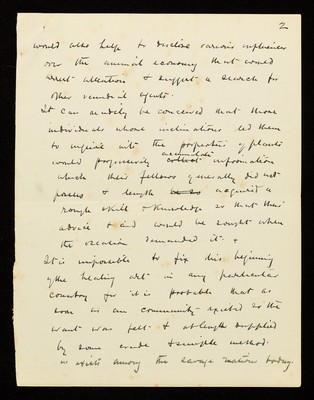 2
would also help to disclose various influences
over the animal economy that would
arrest attention & suggest a search for
other remedial agents.
It can readily be conceived that those
individuals whose inclinations led them
to inquire into the properties of plants
would progressively collect accumulate information
which their fellows generally did not
possess & at length acquired a
rough skill & knowledge so that their
advice & aid would be sought when
the occasion demanded it. &
It is impossible to fix this beginning
of the healing art in any particular
country for it is probable that as
soon as any community existed so the
want was felt & at length supplied
by some crude & simple method.
as exists among the savage nations today.